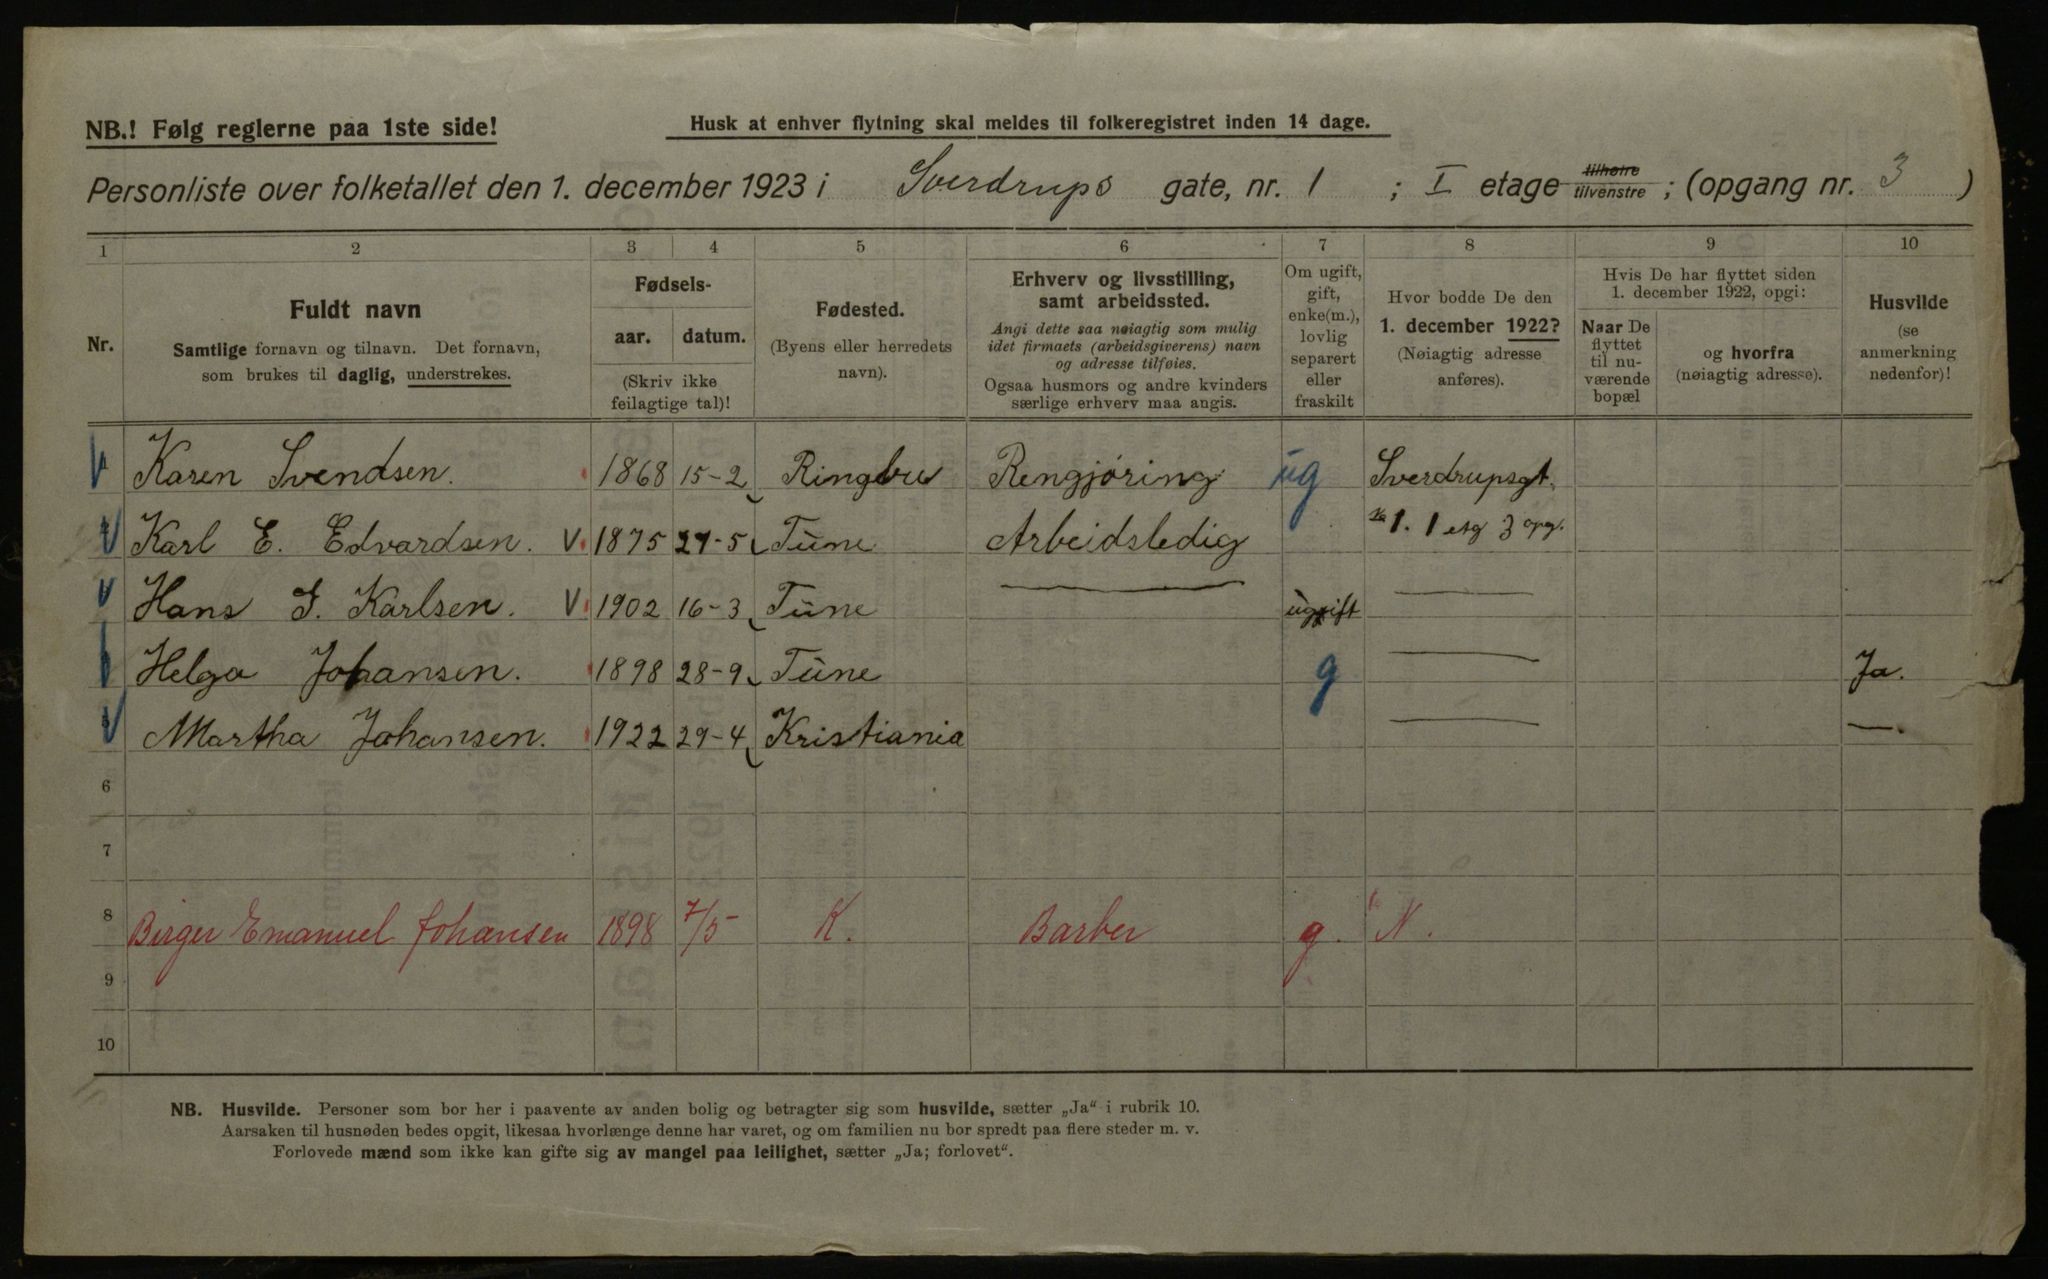 NB.! Følg reglerne paa 1ste side!
Husk at enhver flytning skal meldes til folkeregistret inden 14 dage.
Personliste over folketallet den 1. december 1923 i Sverdrups gate, nr. 1 ; I etage tilhøire tilvenstre ; (opgang nr. 3 )
1 2 3 4 5 6 7 8 9 10
Nr.
Fuldt navn
Samtlige fornavn og tilnavn. Det fornavn,
som brukes til daglig, understrekes.
Fødsels-
aar. datum.
(Skriv ikke
feilagtige tal)!
Fødested.
(Byens eller herredets
navn).
Erhverv og livsstilling,
samt arbeidssted.
Angi dette saa nøiagtig som mulig
idet firmaets (arbeidsgiverens) navn
og adresse tilføies.
Ogsaa husmors og andre kvinders
særlige erhverv maa angis.
Om ugift,
gift,
enke(m.),
lovlig
separert
eller
fraskilt
Hvor bodde De den
1. december 1922?
(Nøiagtig adresse
anføres).
Hvis De har flyttet siden
1. december 1922, opgi:
Naar De
flyttet
til nu-
værende
bopæl
og hvorfra
(nøiagtig adresse).
Husvilde
(se
anmerkning
nedenfor)!
Karen Svendsen. 1868 15-2 Ringbu Rengjøring ug Sverdrupsgt.
Karl E. Edvardsen. V 1875 27-5 Tune Arbeidsledig 1. 1 etg 3 opg.
Hans G. Karlsen. V 1902 16-3 Tune — ugift —
Helga Johansen. 1898 28-9 Tune g — Ja.
Martha Johansen. 1922 29-4 Kristiania — —.
6
7
8 Birger Emanuel Johansen 1898 7/5 K. Barber g. N.
9
10
NB. Husvilde. Personer som bor her i paavente av anden bolig og betragter sig som husvilde, sætter „Ja“ i rubrik 10.
Aarsaken til husnøden bedes opgit, likesaa hvorlænge denne har varet, og om familien nu bor spredt paa flere steder m. v.
Forlovede mænd som ikke kan gifte sig av mangel paa leilighet, sætter „Ja; forlovet“.